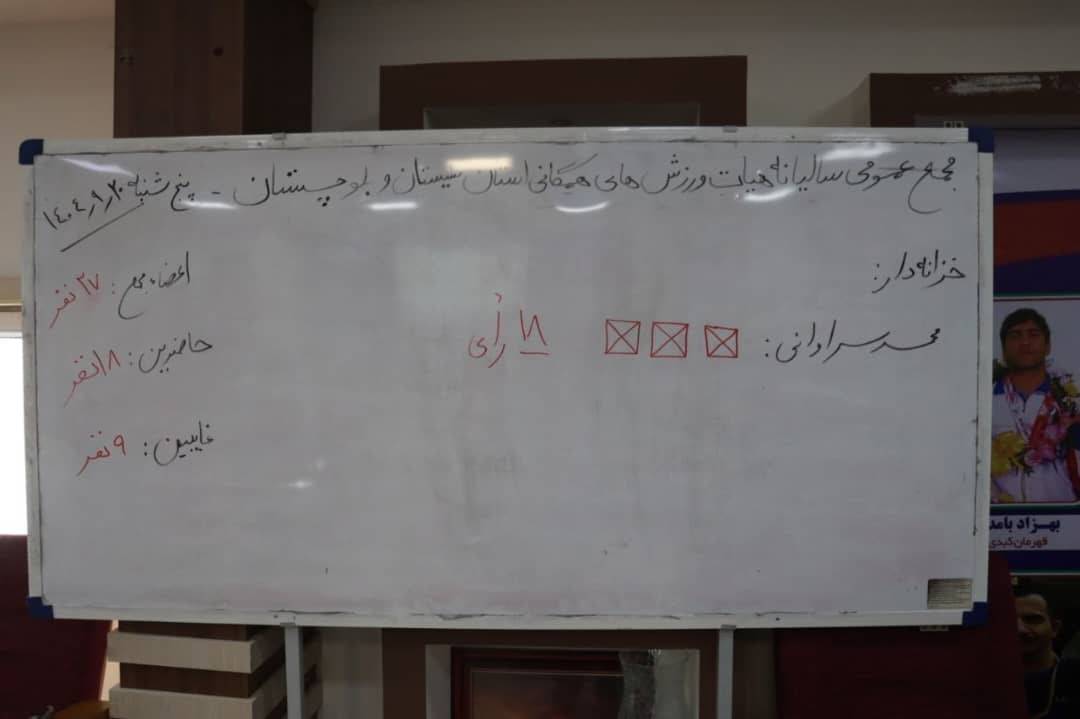 مجمع عمومی سالیانه هیات ورزش های همگانی استان سیستان و بلوچستان - پنج شنبه ۱۴۰۴٫۹٫۲۰
خزانه دار:
محمد سراوانی: ۱۸ رأی
اعضاء مجمع: ۲۷ نفر
حاضرین: ۱۸ نفر
غایبین: ۹ نفر
بهزاد بامد
قهرمان کبدی